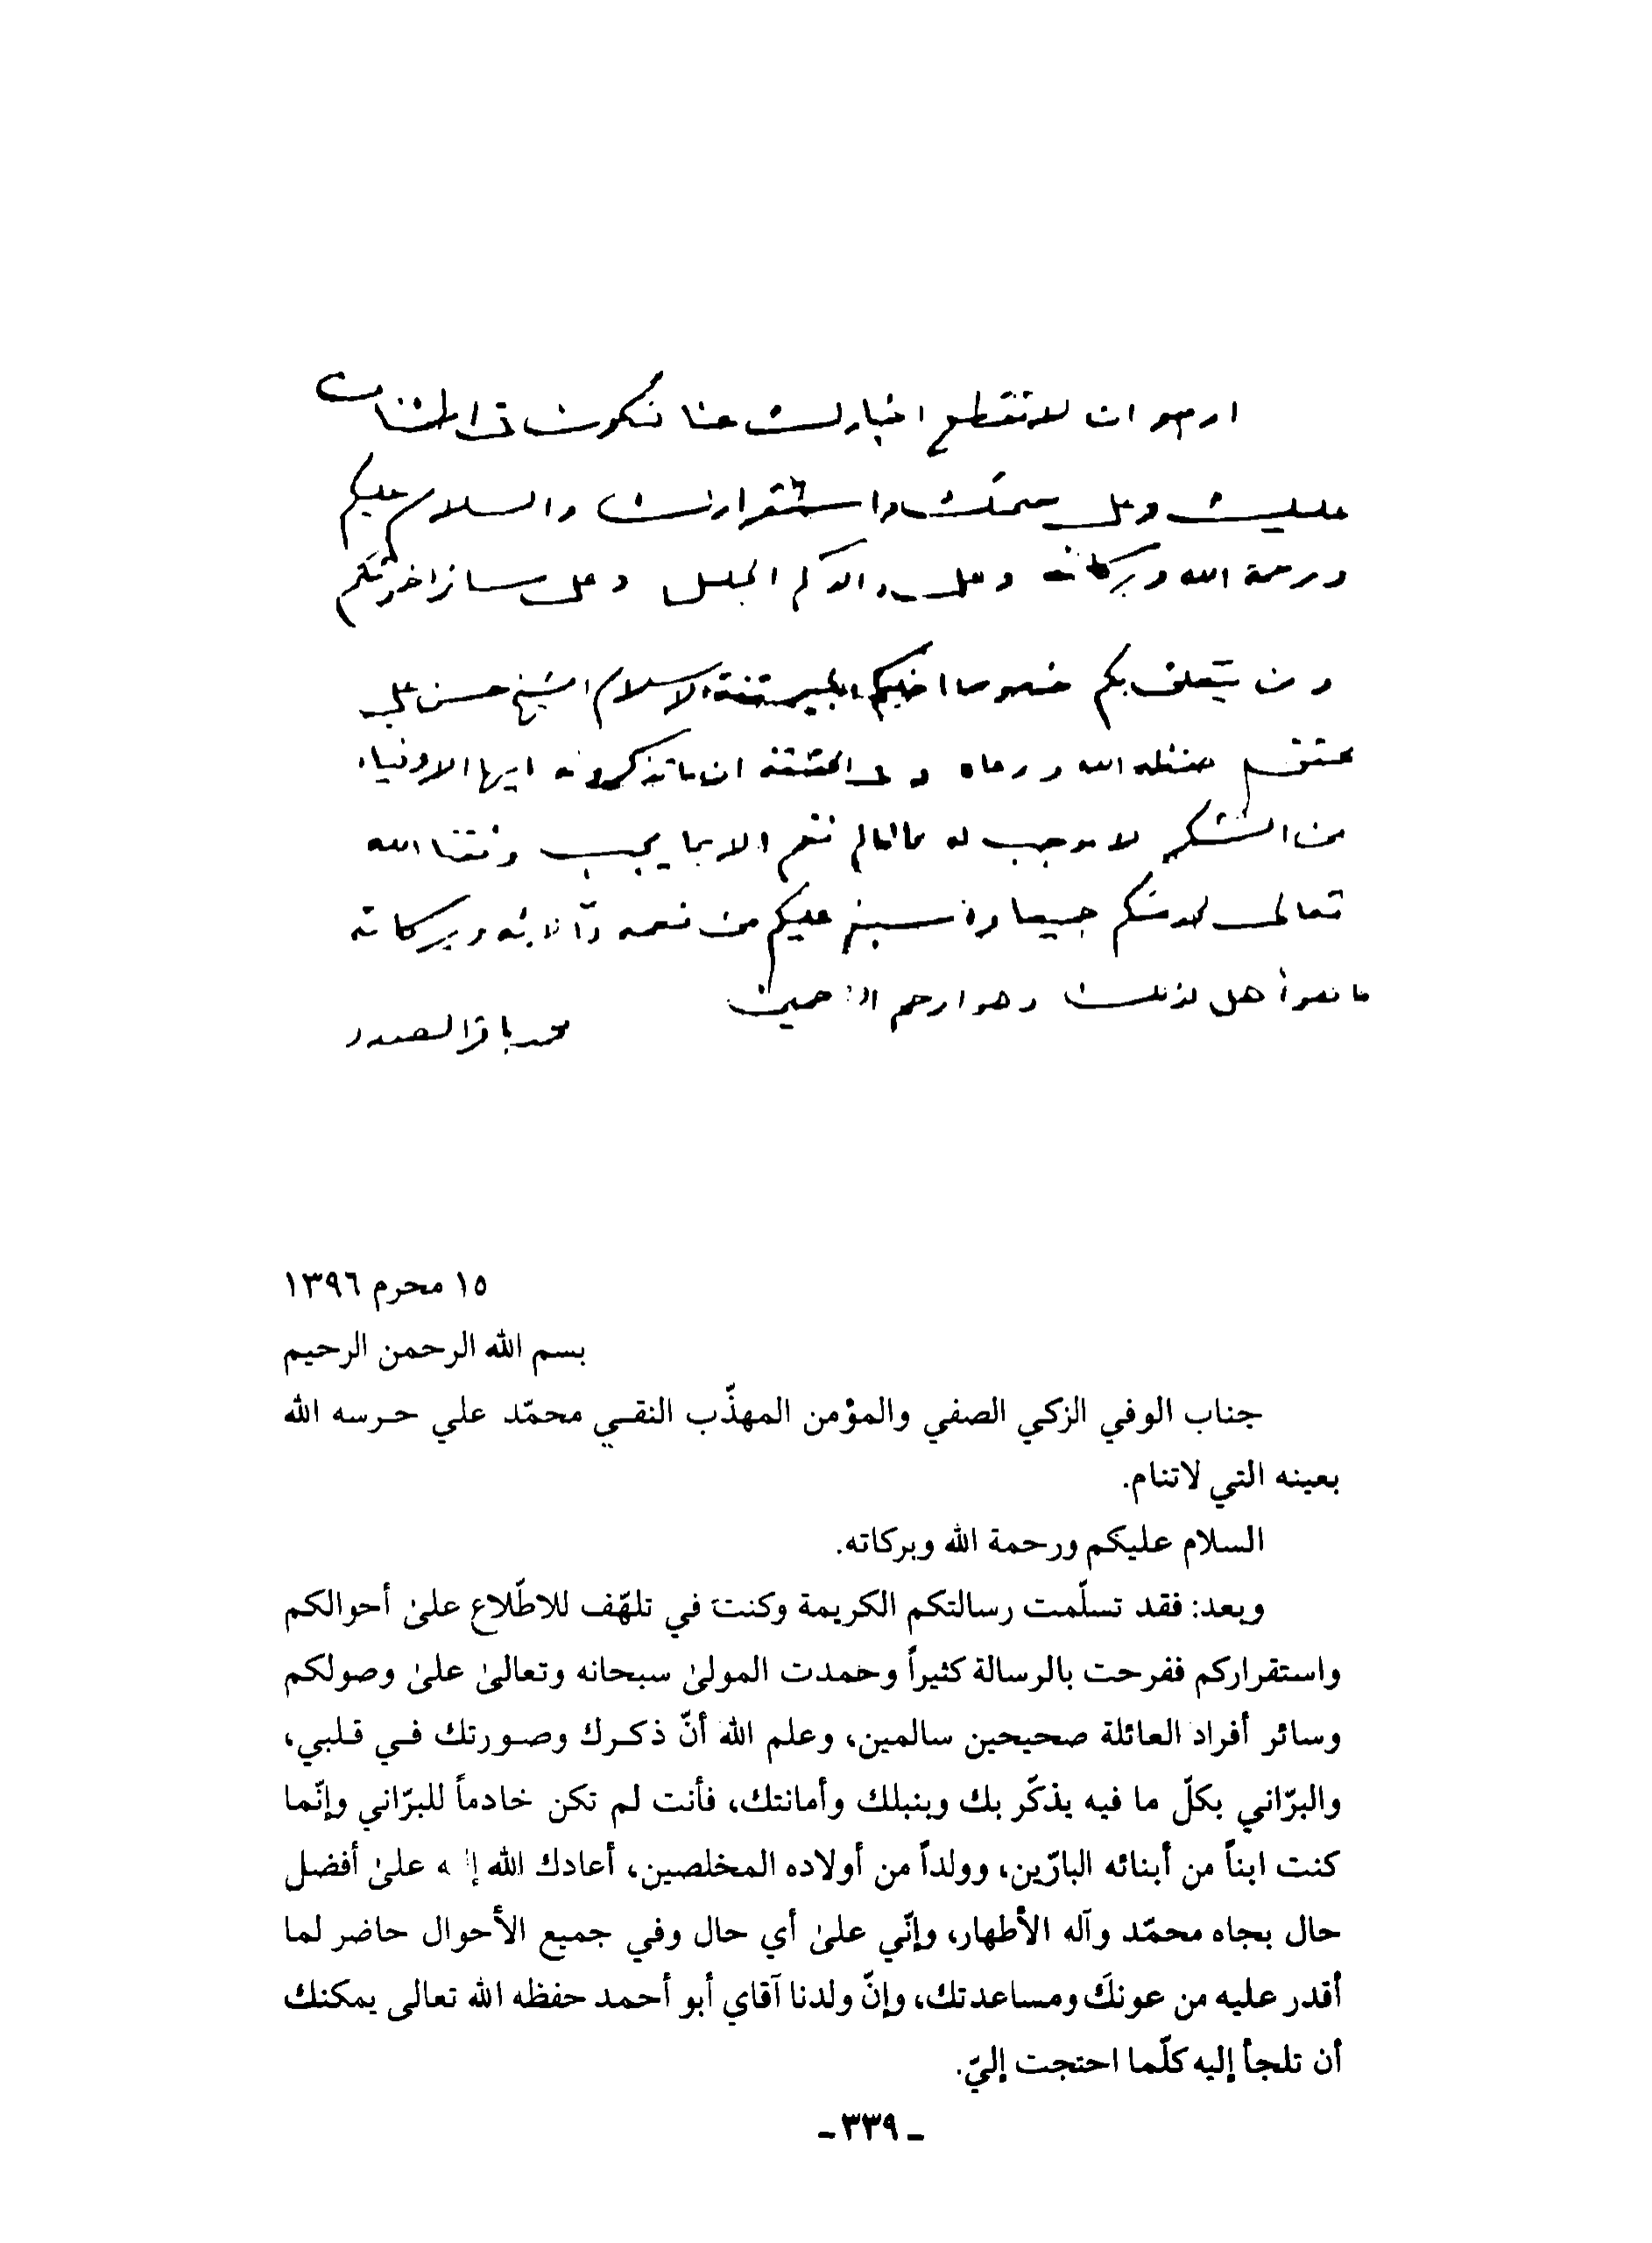 ارجو ان لا تنقطع اخبارك عنا نكون في اطمئنان
عليك وعلى صحتك واستقرارك والسلام عليكم
ورحمة الله وبركاته وعلى والدكم الجليل وعلى سائر اخوتكم
ومن يتعلق بكم خصوصا اخيكم الكبير ثقة الاسلام الشيخ حسن علي
حفظه الله ورعاه وفي الحقيقة ان ما تذكرونه ايها الاوفياء
من الشكر لا موجب له فاننا لم نقم الا بما يجب وفقنا الله
تعالى لخدمتكم جميعا عليكم من نعمه وآلائه وبركاته
ما هو أهل لذلك وهو ارحم الراحمين
محمد باقر الصدر
١٥ محرم ١٣٩٦
بسم الله الرحمن الرحيم
جناب الوفي الزكي الصفي والمؤمن المهذّب النقي محمّد علي حرسه الله
بعينه التي لاتنام.
السلام عليكم ورحمة الله وبركاته.
وبعد: فقد تسلّمت رسالتكم الكريمة وكنت في تلهّف للاطّلاع علىٰ أحوالكم
واستقراركم ففرحت بالرسالة كثيراً وحمدت المولىٰ سبحانه وتعالىٰ علىٰ وصولكم
وسائر أفراد العائلة صحيحين سالمين، وعلم الله أنّ ذكرك وصورتك في قلبي،
والبرّاني بكلّ ما فيه يذكّر بك وبنبلك وأمانتك، فأنت لم تكن خادماً للبرّاني وإنّما
كنت ابناً من أبنائه البارّين، وولداً من أولاده المخلصين، أعادك الله علىٰ أفضل
حال بجاه محمّد وآله الأطهار، وإنّي علىٰ أي حال وفي جميع الأحوال حاضر لما
أقدر عليه من عونك ومساعدتك، وإنّ ولدنا آقاي أبو أحمد حفظه الله تعالى يمكنك
أن تلجأ إليه كلّما احتجت إليّ.
ـ ٣٣٩ ـ